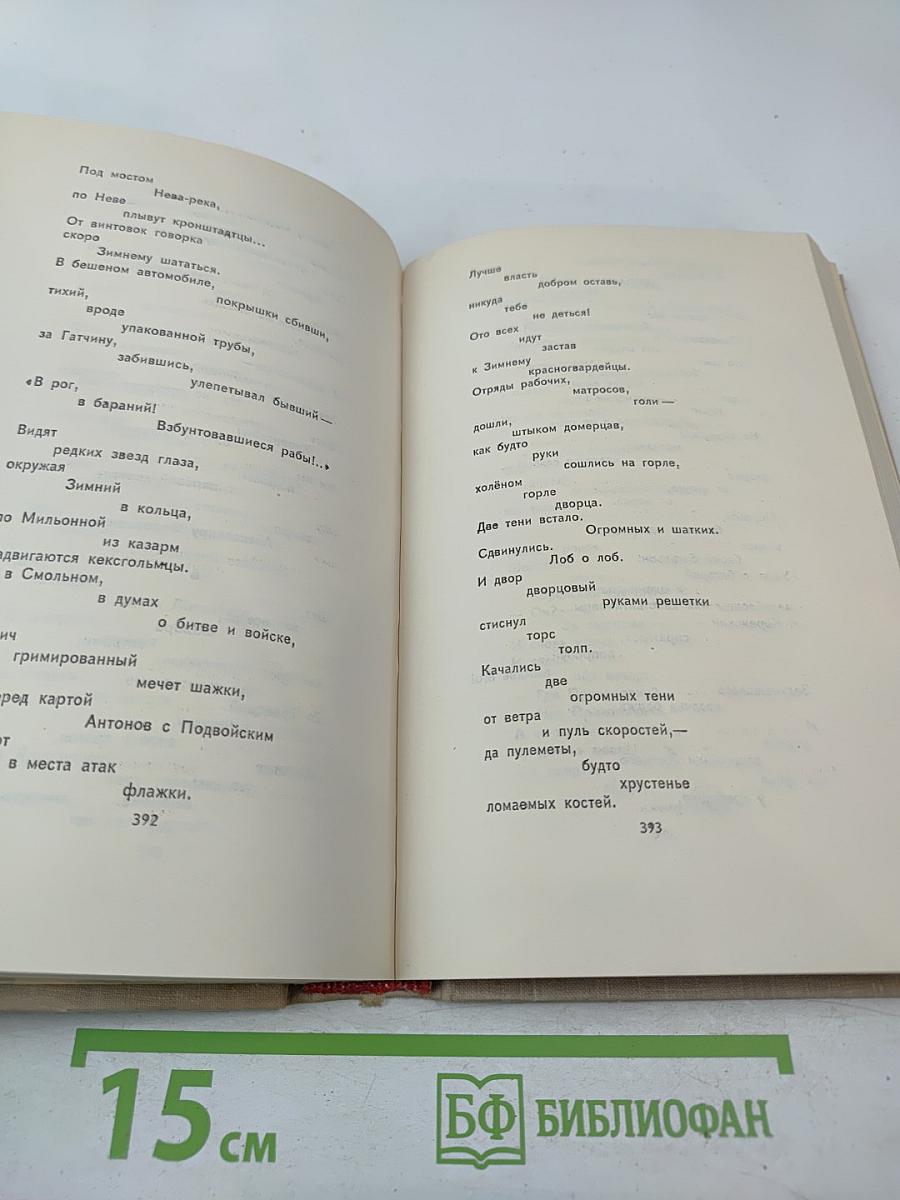 Под мостом
Нева-река,
по Неве
плывут кронштадтцы...
От винтовок говорка
скоро
Зимнему шататься.
В бешеном автомобиле,
покрышки сбивши,
тихий,
вроде
упакованной трубы,
за Гатчину,
забившись,
улепетывал бывший—
«В рог,
в бараний!
Взбунтовавшиеся рабы!..»
Видят
редких звезд глаза,
окружая
Зимний
в кольца,
по Мильонной
из казарм
адвигаются кексгольмцы.
в Смольном,
в думах
о битве и войске,
ич
гримированный
мечет шажки,
еред картой
Антонов с Подвойским
от
в места атак
флажки.
392
Лучше
власть
добром оставь,
никуда
тебе
не деться!
Ото всех
идут
застав
к Зимнему
красногвардейцы.
Отряды рабочих,
матросов,
голи—
дошли,
штыком домерцав,
как будто
руки
сошлись на горле,
холёном
горле
дворца.
Две тени встало.
Огромных и шатких.
Сдвинулись.
Лоб о лоб.
И двор
дворцовый
руками решетки
стиснул
торс
толп.
Качались
две
огромных тени
от ветра
и пуль скоростей,—
да пулеметы,
будто
хрустенье
ломаемых костей.
393
15 см
БФ БИБЛИОФАН